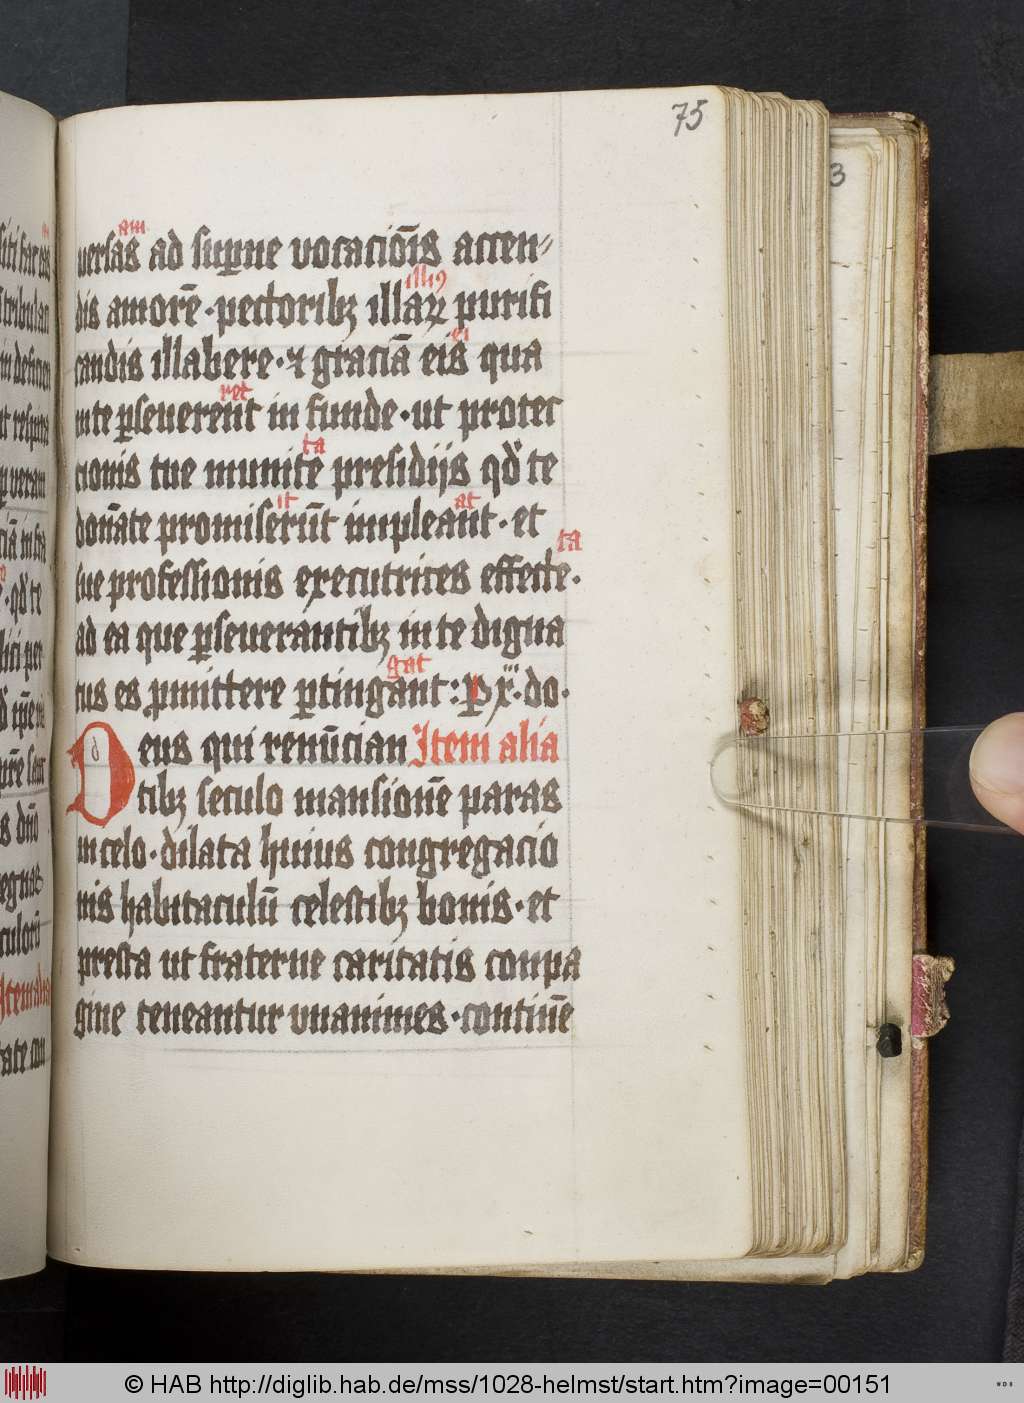 75
3
am
versas ad sup̱ne vocacōīs accen⸗
illiꝰ
dis amorē · pectoribꝫ illaꝝ purifi
ei
candis illabere · ⁊ graciā eis qua
ret
in te ꝑseuerēnt in funde · ut protec
ta
cionis tue munite presidijs qd̉ te
it at
donāte promiserūt impleant · et
ta
sue professionis executrices effecte ·
ad ea que ꝑseuerantibꝫ in te digna
gat
tus es ꝓmittere ꝑtingant : ꝑ xͬ · do ·
Deus qui renūcian Item alia
tibꝫ seculo mansionē paras
in celo · dilata huius congregacio
nis habitaculū celestibꝫ bonis · et
presta ut fraterne caritatis conpa
gine teneantur vnanimes · continē
© HAB http://diglib.hab.de/mss/1028-helmst/start.htm?image=00151